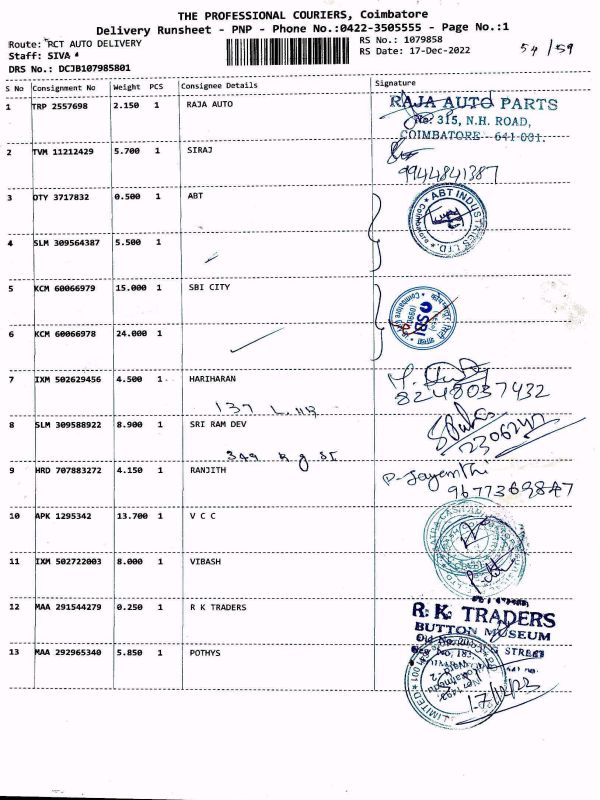 THE PROFESSIONAL COURIERS, Coimbatore
Delivery Runsheet - PNP - Phone No.:0422-3505555 - Page No.:1
Route: RCT AUTO DELIVERY
RS No.: 1079858
Staff: SIVA
RS Date: 17-Dec-2022
54/59
DRS No.: DCJB107985801
S No Consignment No Weight PCS Consignee Details Signature
1 TRP 2557698 2.150 1 RAJA AUTO
RAJA AUTO PARTS
No: 315, N.H. ROAD,
COIMBATORE - 641 001.
2 TVM 11212429 5.700 1 SIRAJ
9944841387
3 DTY 3717832 0.500 1 ABT
ABT INDUSTRIES LTD.
4 SLM 309564387 5.500 1
5 KCM 60066979 15.000 1 SBI CITY
SBI
6 KCM 60066978 24.000 1
7 IXM 502629456 4.500 1 HARIHARAN
8248037432
137
8 SLM 309588922 8.900 1 SRI RAM DEV
349
9 HRD 707883272 4.150 1 RANJITH
P. Jayanthi
9677369847
10 APK 1295342 13.700 1 V C C
11 IXM 502722003 8.000 1 VIBASH
12 MAA 291544279 0.250 1 R K TRADERS
R. K. TRADERS
BUTTON MUSEUM
STREET
13 MAA 292965340 5.850 1 POTHYS
LIMITED